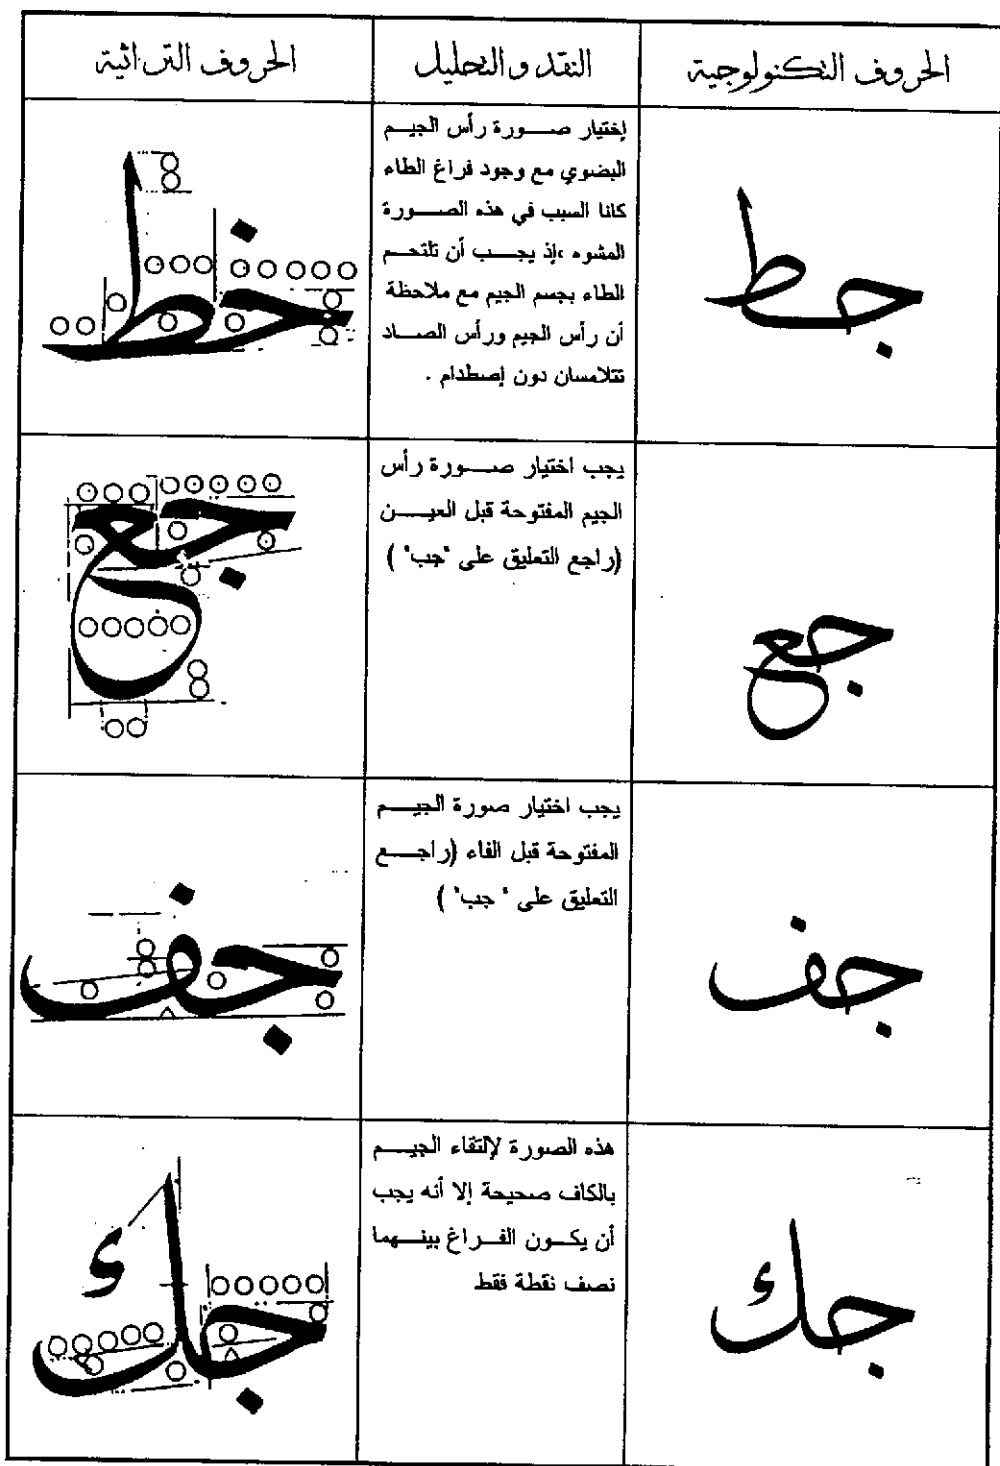 الحروف التكنولوجية
النقد والتحليل
الحروف التراثية
جط
إختيار صورة رأس الجيم
البضوي مع وجود فراغ الطاء
كانا السبب في هذه الصورة
المشوه ،إذ يجب أن تلتحم
الطاء بجسم الجيم مع ملاحظة
أن رأس الجيم ورأس الصاد
تتلامسان دون إصطدام .
خط
جع
يجب اختيار صورة رأس
الجيم المفتوحة قبل العين
(راجع التعليق على "جب" )
جع
جف
يجب اختيار صورة الجيم
المفتوحة قبل الفاء (راجع
التعليق على " جب" )
جف
جك
هذه الصورة لإلتقاء الجيم
بالكاف صحيحة إلا أنه يجب
أن يكون الفراغ بينهما
نصف نقطة فقط
جك